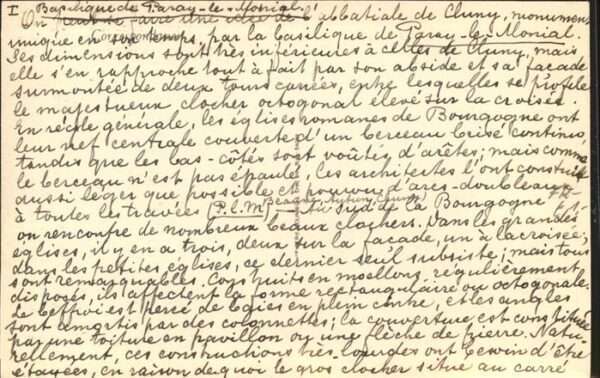 I Basilique de Paray-le-Monial.
On peut se faire une idée de l'abbatiale de Cluny, monument
unique en son temps, par la basilique de Paray-le-Monial.
Ses dimensions sont très inférieures à celles de Cluny, mais
elle s'en rapproche tout à fait par son abside et sa façade
surmontée de deux tours carrées, entre lesquelles se profile
le majestueux clocher octogonal élevé sur la croisée.
En règle générale, les églises romanes de Bourgogne ont
leur nef centrale couverte d'un berceau brisé continu,
tandis que les bas-côtés sont voûtés d'arêtes; mais comme
le berceau n'est pas épaulé, les architectes l'ont construit
aussi léger que possible et pourvu d'arcs-doubleaux
à toutes les travées (P.l.M) Beaune, Autun, Cluny
Au sud de la Bourgogne
on rencontre de nombreux beaux clochers. Dans les grandes
églises, il y en a trois, deux sur la façade, un à la croisée;
dans les petites églises, ce dernier seul subsiste; mais tous
sont remarquables. Construits en moellons, régulièrement
disposés, ils affectent la forme rectangulaire ou octogonale.
Le beffroi est percé de baies en plein cintre, et les angles
sont amortis par des colonnettes; la couverture est constituée
par une toiture en pavillon ou une flèche de pierre. Natu-
rellement, ces constructions très lourdes ont besoin d'être
étayées, en raison de quoi le gros clocher situé au carré